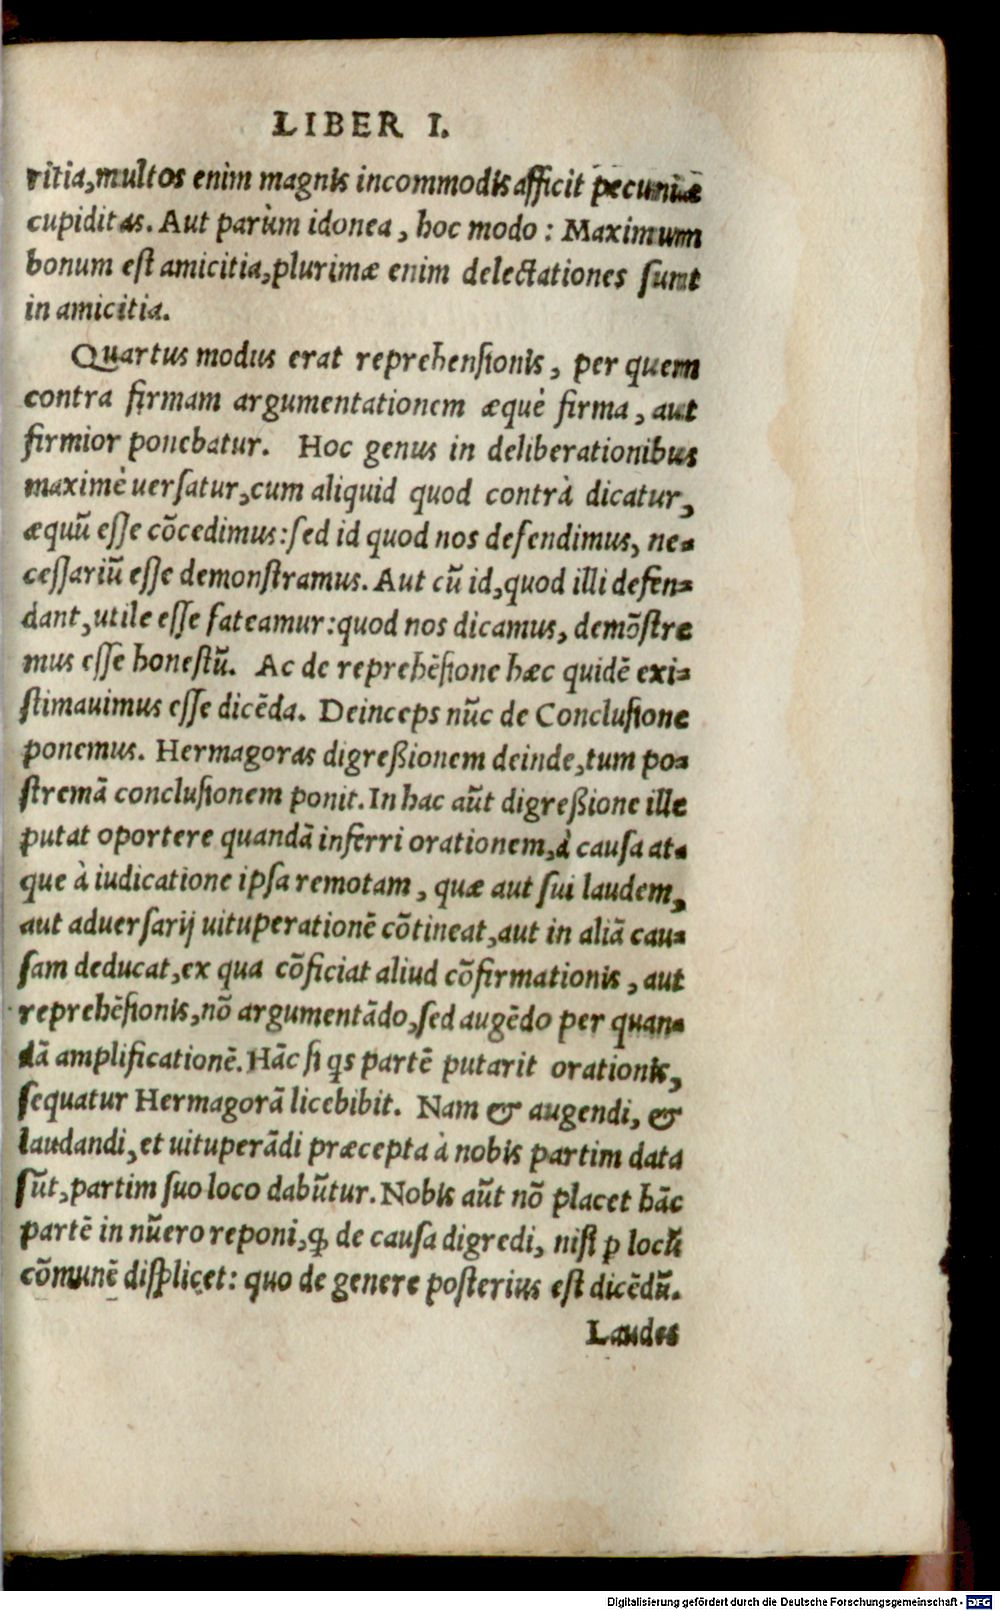 LIBER I.
ritia, multos enim magnis incommodis afficit pecuniæ
cupiditas. Aut parùm idonea, hoc modo: Maximum
bonum est amicitia, plurimæ enim delectationes sunt
in amicitia.
Quartus modus erat reprehensionis, per quem
contra firmam argumentationem æquè firma, aut
firmior ponebatur. Hoc genus in deliberationibus
maximè uersatur, cum aliquid quod contrà dicatur,
æquũ esse cõcedimus: sed id quod nos defendimus, ne-
cessariũ esse demonstramus. Aut cũ id, quod illi defen-
dant, utile esse fateamur: quod nos dicamus, demõstre
mus esse honestũ. Ac de reprehẽsione hæc quidẽ exi-
stimauimus esse dicẽda. Deinceps nũc de Conclusione
ponemus. Hermagoras digreßionem deinde, tum po-
stremã conclusionem ponit. In hac aũt digreßione ille
putat oportere quandã inferri orationem, à causa at-
que à iudicatione ipsa remotam, quæ aut sui laudem,
aut aduersarij uituperationẽ cõtineat, aut in aliã cau-
sam deducat, ex qua cõficiat aliud cõfirmationis, aut
reprehẽsionis, nõ argumentãdo, sed augẽdo per quan-
dã amplificationẽ. Hãc si qs partẽ putarit orationis,
sequatur Hermagorã licebibit. Nam & augendi, &
laudandi, et uituperãdi præcepta à nobis partim data
sũt, partim suo loco dabũtur. Nobis aũt nõ placet hãc
partẽ in nũero reponi, ꝙ de causa digredi, nisi ꝑ locũ
cõmunẽ displicet: quo de genere posterius est dicẽdũ.
Laudes
Digitalisierung gefördert durch die Deutsche Forschungsgemeinschaft - DFG